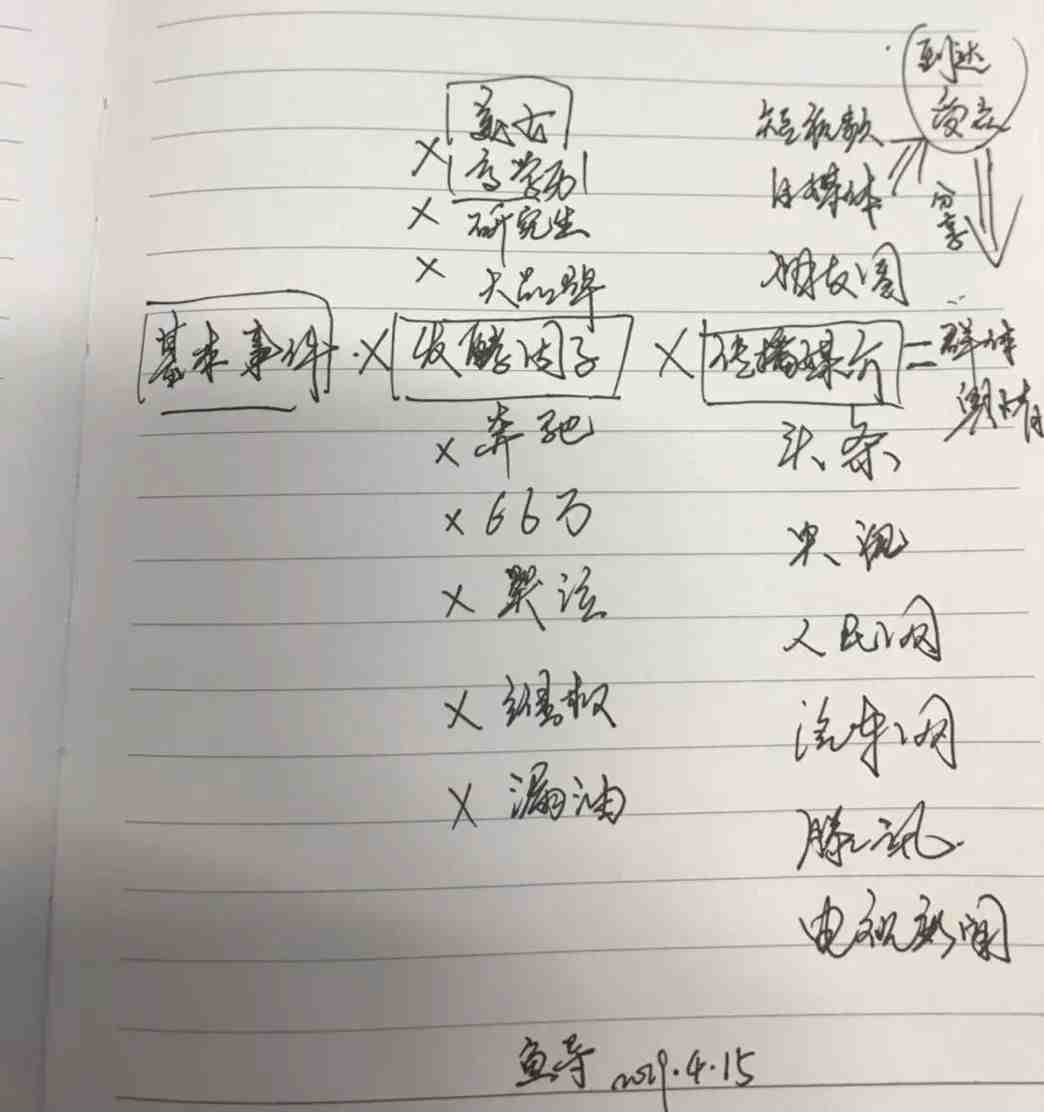 到达
受众
美女
× 高学历
× 研究生
× 大品牌
短视频
自媒体
分享
朋友圈
基本事件 · × 发酵因子 × 传播媒介 = 群体
舆情
× 奔驰
× 66万
× 哭泣
× 维权
× 漏油
头条
央视
人民网
汽车网
腾讯
电视新闻
2019.4.15